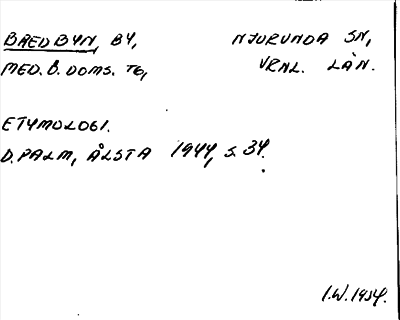 BREDBYN, BY, NJURUNDA SN,
MED. B. DOMS. TG, VRNL. LÄN.
ETYMOLOGI.
D. PALM, ÅLSTA 1944, S. 34.
I.W. 1954.